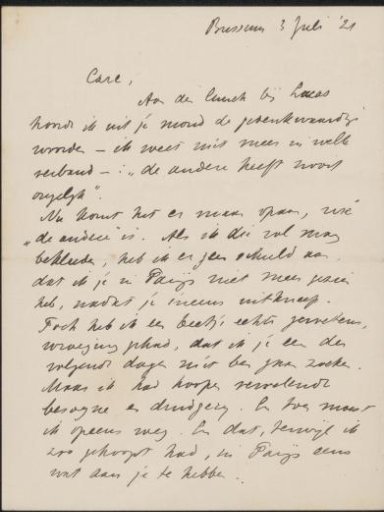 Bussum 3 Juli '21
Care,
Aan den lunch bij Lucas
hoorde ik uit je mond de gedenkwaardige
woorden – ik weet niet meer in welk
verband – : „de andere heeft nooit
ongelijk".
Nu komt het er maar op aan, wie
„de andere" is. Als ik die rol mag
bekleeden, heb ik er geen schuld aan
dat ik je in Parijs niet meer gezien
heb, nadat je ineens uitkneep.
Toch heb ik een beetje echte gewetens-
wroeging gehad, dat ik je een der
volgende dagen niet ben gaan zoeken.
Maar ik had hoopen vervelende
besogne en drudgery. En toen moest
ik opeens weg. En dat, terwijl ik
zoo gehoopt had, in Parijs eens
wat aan je te hebben.